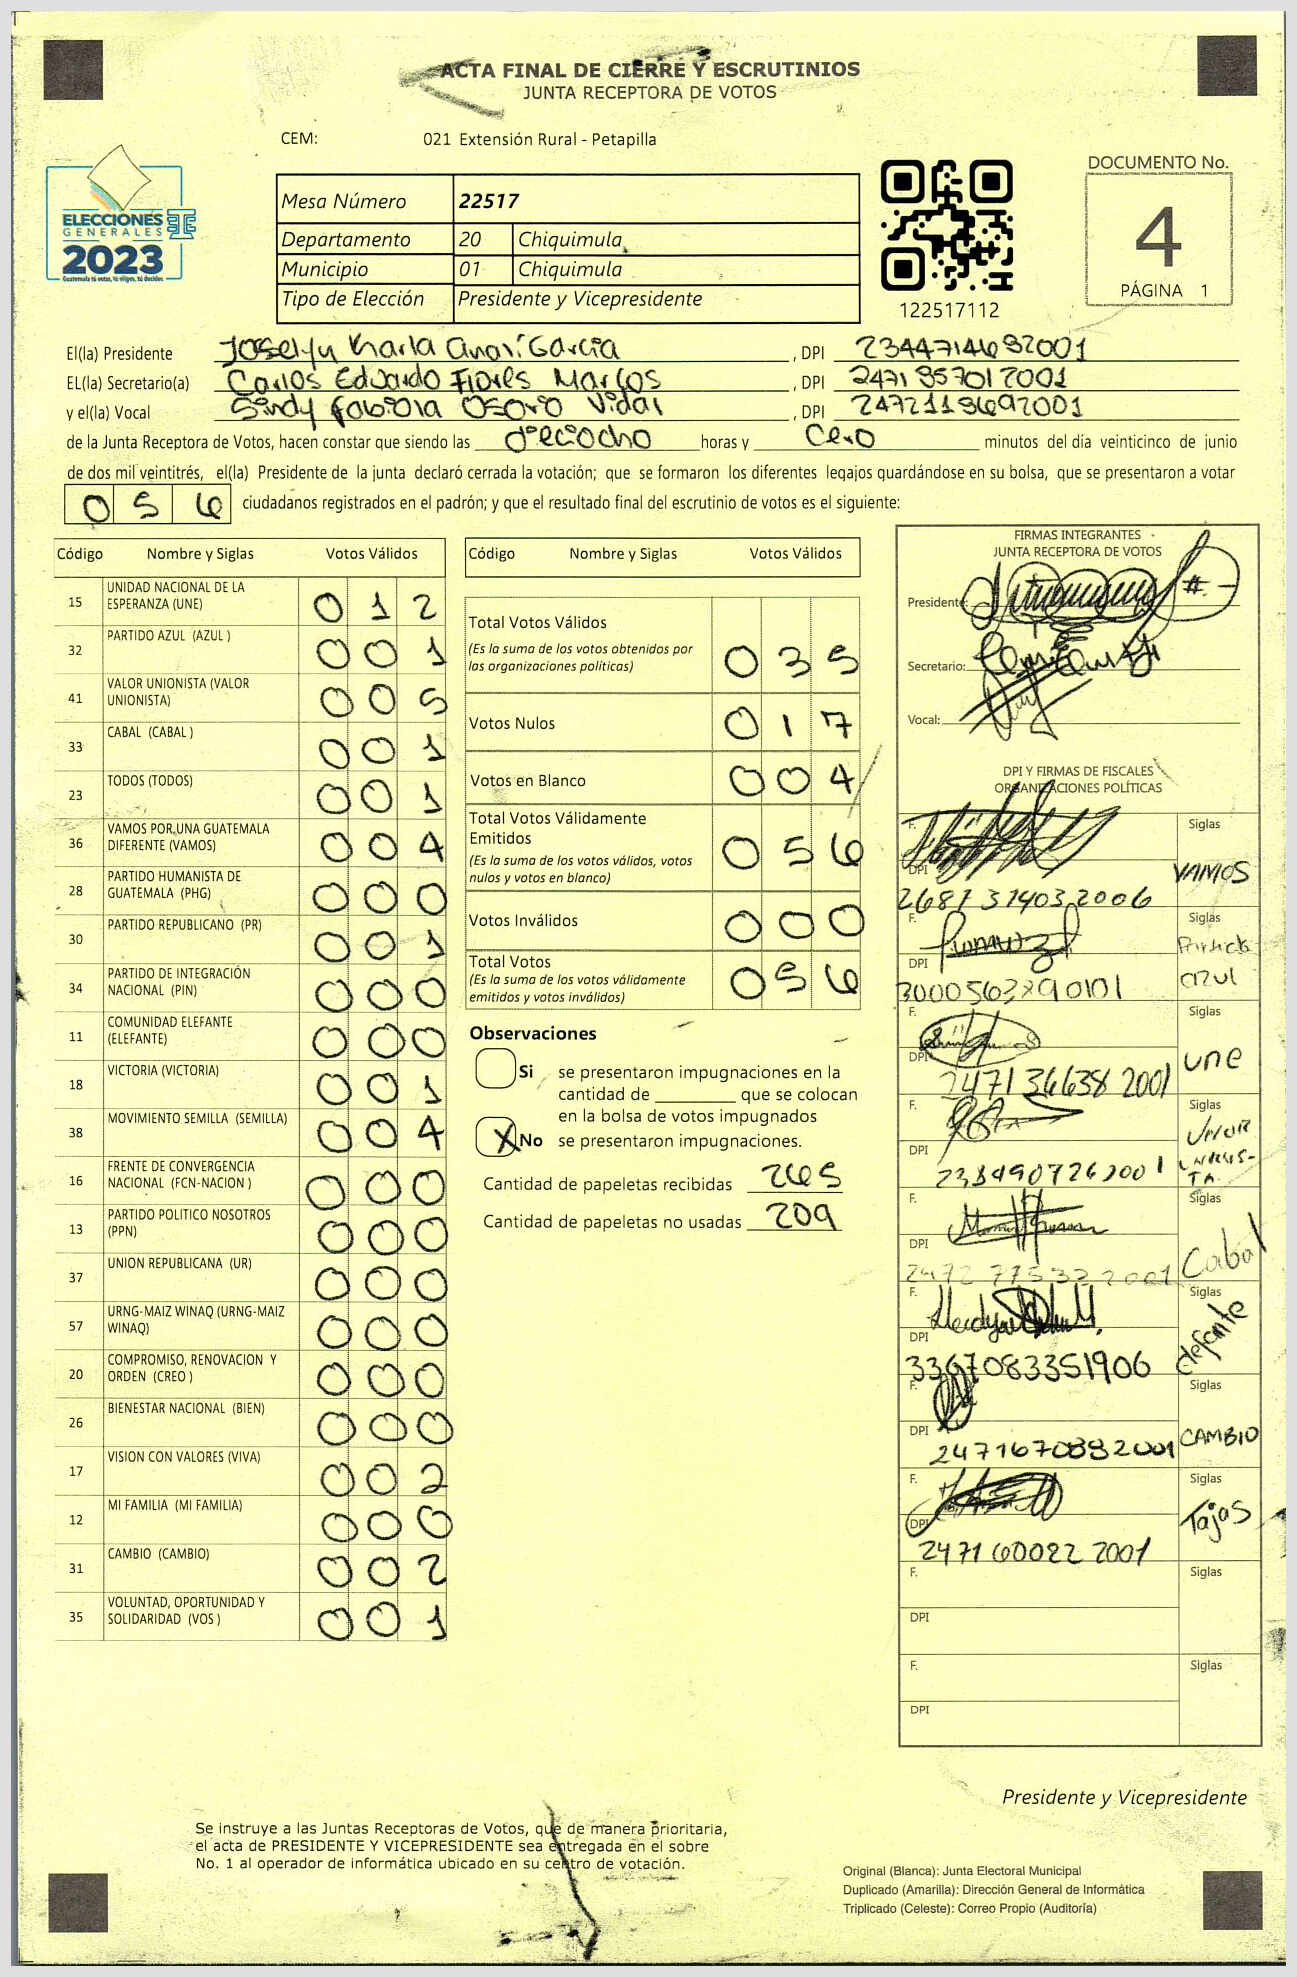 ACTA FINAL DE CIERRE Y ESCRUTINIOS
JUNTA RECEPTORA DE VOTOS
CEM: 021 Extensión Rural - Petapilla
ELECCIONES
GENERALES
2023
Guatemala tú votas, tú eliges, tú decides
Mesa Número 22517
Departamento 20 Chiquimula
Municipio 01 Chiquimula
Tipo de Elección Presidente y Vicepresidente
122517112
DOCUMENTO No.
4
PÁGINA 1
El(la) Presidente Joselyn Karla Anaí García , DPI
EL(la) Secretario(a) Carlos Eduardo Flores Marcos , DPI 2471957012001
y el(la) Vocal Sindy Fabiola Osorio Vidal , DPI
de la Junta Receptora de Votos, hacen constar que siendo las dieciocho horas y cero minutos del día veinticinco de junio
de dos mil veintitrés, el(la) Presidente de la junta declaró cerrada la votación; que se formaron los diferentes legajos quardándose en su bolsa, que se presentaron a votar
0 5 6 ciudadanos registrados en el padrón; y que el resultado final del escrutinio de votos es el siguiente:
Código Nombre y Siglas Votos Válidos
15 UNIDAD NACIONAL DE LA ESPERANZA (UNE) 0 1 2
32 PARTIDO AZUL (AZUL ) 0 0 1
41 VALOR UNIONISTA (VALOR UNIONISTA) 0 0 5
33 CABAL (CABAL ) 0 0 1
23 TODOS (TODOS) 0 0 1
36 VAMOS POR UNA GUATEMALA DIFERENTE (VAMOS) 0 0 4
28 PARTIDO HUMANISTA DE GUATEMALA (PHG) 0 0 0
30 PARTIDO REPUBLICANO (PR) 0 0 1
34 PARTIDO DE INTEGRACIÓN NACIONAL (PIN) 0 0 0
11 COMUNIDAD ELEFANTE (ELEFANTE) 0 0 0
18 VICTORIA (VICTORIA) 0 0 1
38 MOVIMIENTO SEMILLA (SEMILLA) 0 0 4
16 FRENTE DE CONVERGENCIA NACIONAL (FCN-NACION ) 0 0 0
13 PARTIDO POLITICO NOSOTROS (PPN) 0 0 0
37 UNION REPUBLICANA (UR) 0 0 0
57 URNG-MAIZ WINAQ (URNG-MAIZ WINAQ) 0 0 0
20 COMPROMISO, RENOVACION Y ORDEN (CREO ) 0 0 0
26 BIENESTAR NACIONAL (BIEN) 0 0 0
17 VISION CON VALORES (VIVA) 0 0 2
12 MI FAMILIA (MI FAMILIA) 0 0 0
31 CAMBIO (CAMBIO) 0 0 2
35 VOLUNTAD, OPORTUNIDAD Y SOLIDARIDAD (VOS ) 0 0 1
Código Nombre y Siglas Votos Válidos
Total Votos Válidos
(Es la suma de los votos obtenidos por las organizaciones políticas) 0 3 5
Votos Nulos 0 1 7
Votos en Blanco 0 0 4
Total Votos Válidamente Emitidos
(Es la suma de los votos válidos, votos nulos y votos en blanco) 0 5 6
Votos Inválidos 0 0 0
Total Votos
(Es la suma de los votos válidamente emitidos y votos inválidos) 0 5 6
Observaciones
Si se presentaron impugnaciones en la
cantidad de ________ que se colocan
en la bolsa de votos impugnados
X No se presentaron impugnaciones.
Cantidad de papeletas recibidas 265
Cantidad de papeletas no usadas 209
FIRMAS INTEGRANTES
JUNTA RECEPTORA DE VOTOS
Presidente:
Secretario:
Vocal:
DPI Y FIRMAS DE FISCALES
ORGANIZACIONES POLÍTICAS
F. Siglas VAMOS
DPI 2687 37403 2006
F. Siglas Partido azul
DPI
F. Siglas une
DPI 2471 36638 2001
F. Siglas
DPI
F. Siglas Cabal
DPI 2472 77532 2001
F. Siglas elefante
DPI 3367083351906
F. Siglas CAMBIO
DPI 2471670882001
F. Siglas Tajas
DPI 2471 60022 2001
F. Siglas
DPI
F. Siglas
DPI
Presidente y Vicepresidente
Se instruye a las Juntas Receptoras de Votos, que de manera prioritaria,
el acta de PRESIDENTE Y VICEPRESIDENTE sea entregada en el sobre
No. 1 al operador de informática ubicado en su centro de votación.
Original (Blanca): Junta Electoral Municipal
Duplicado (Amarilla): Dirección General de Informática
Triplicado (Celeste): Correo Propio (Auditoría)